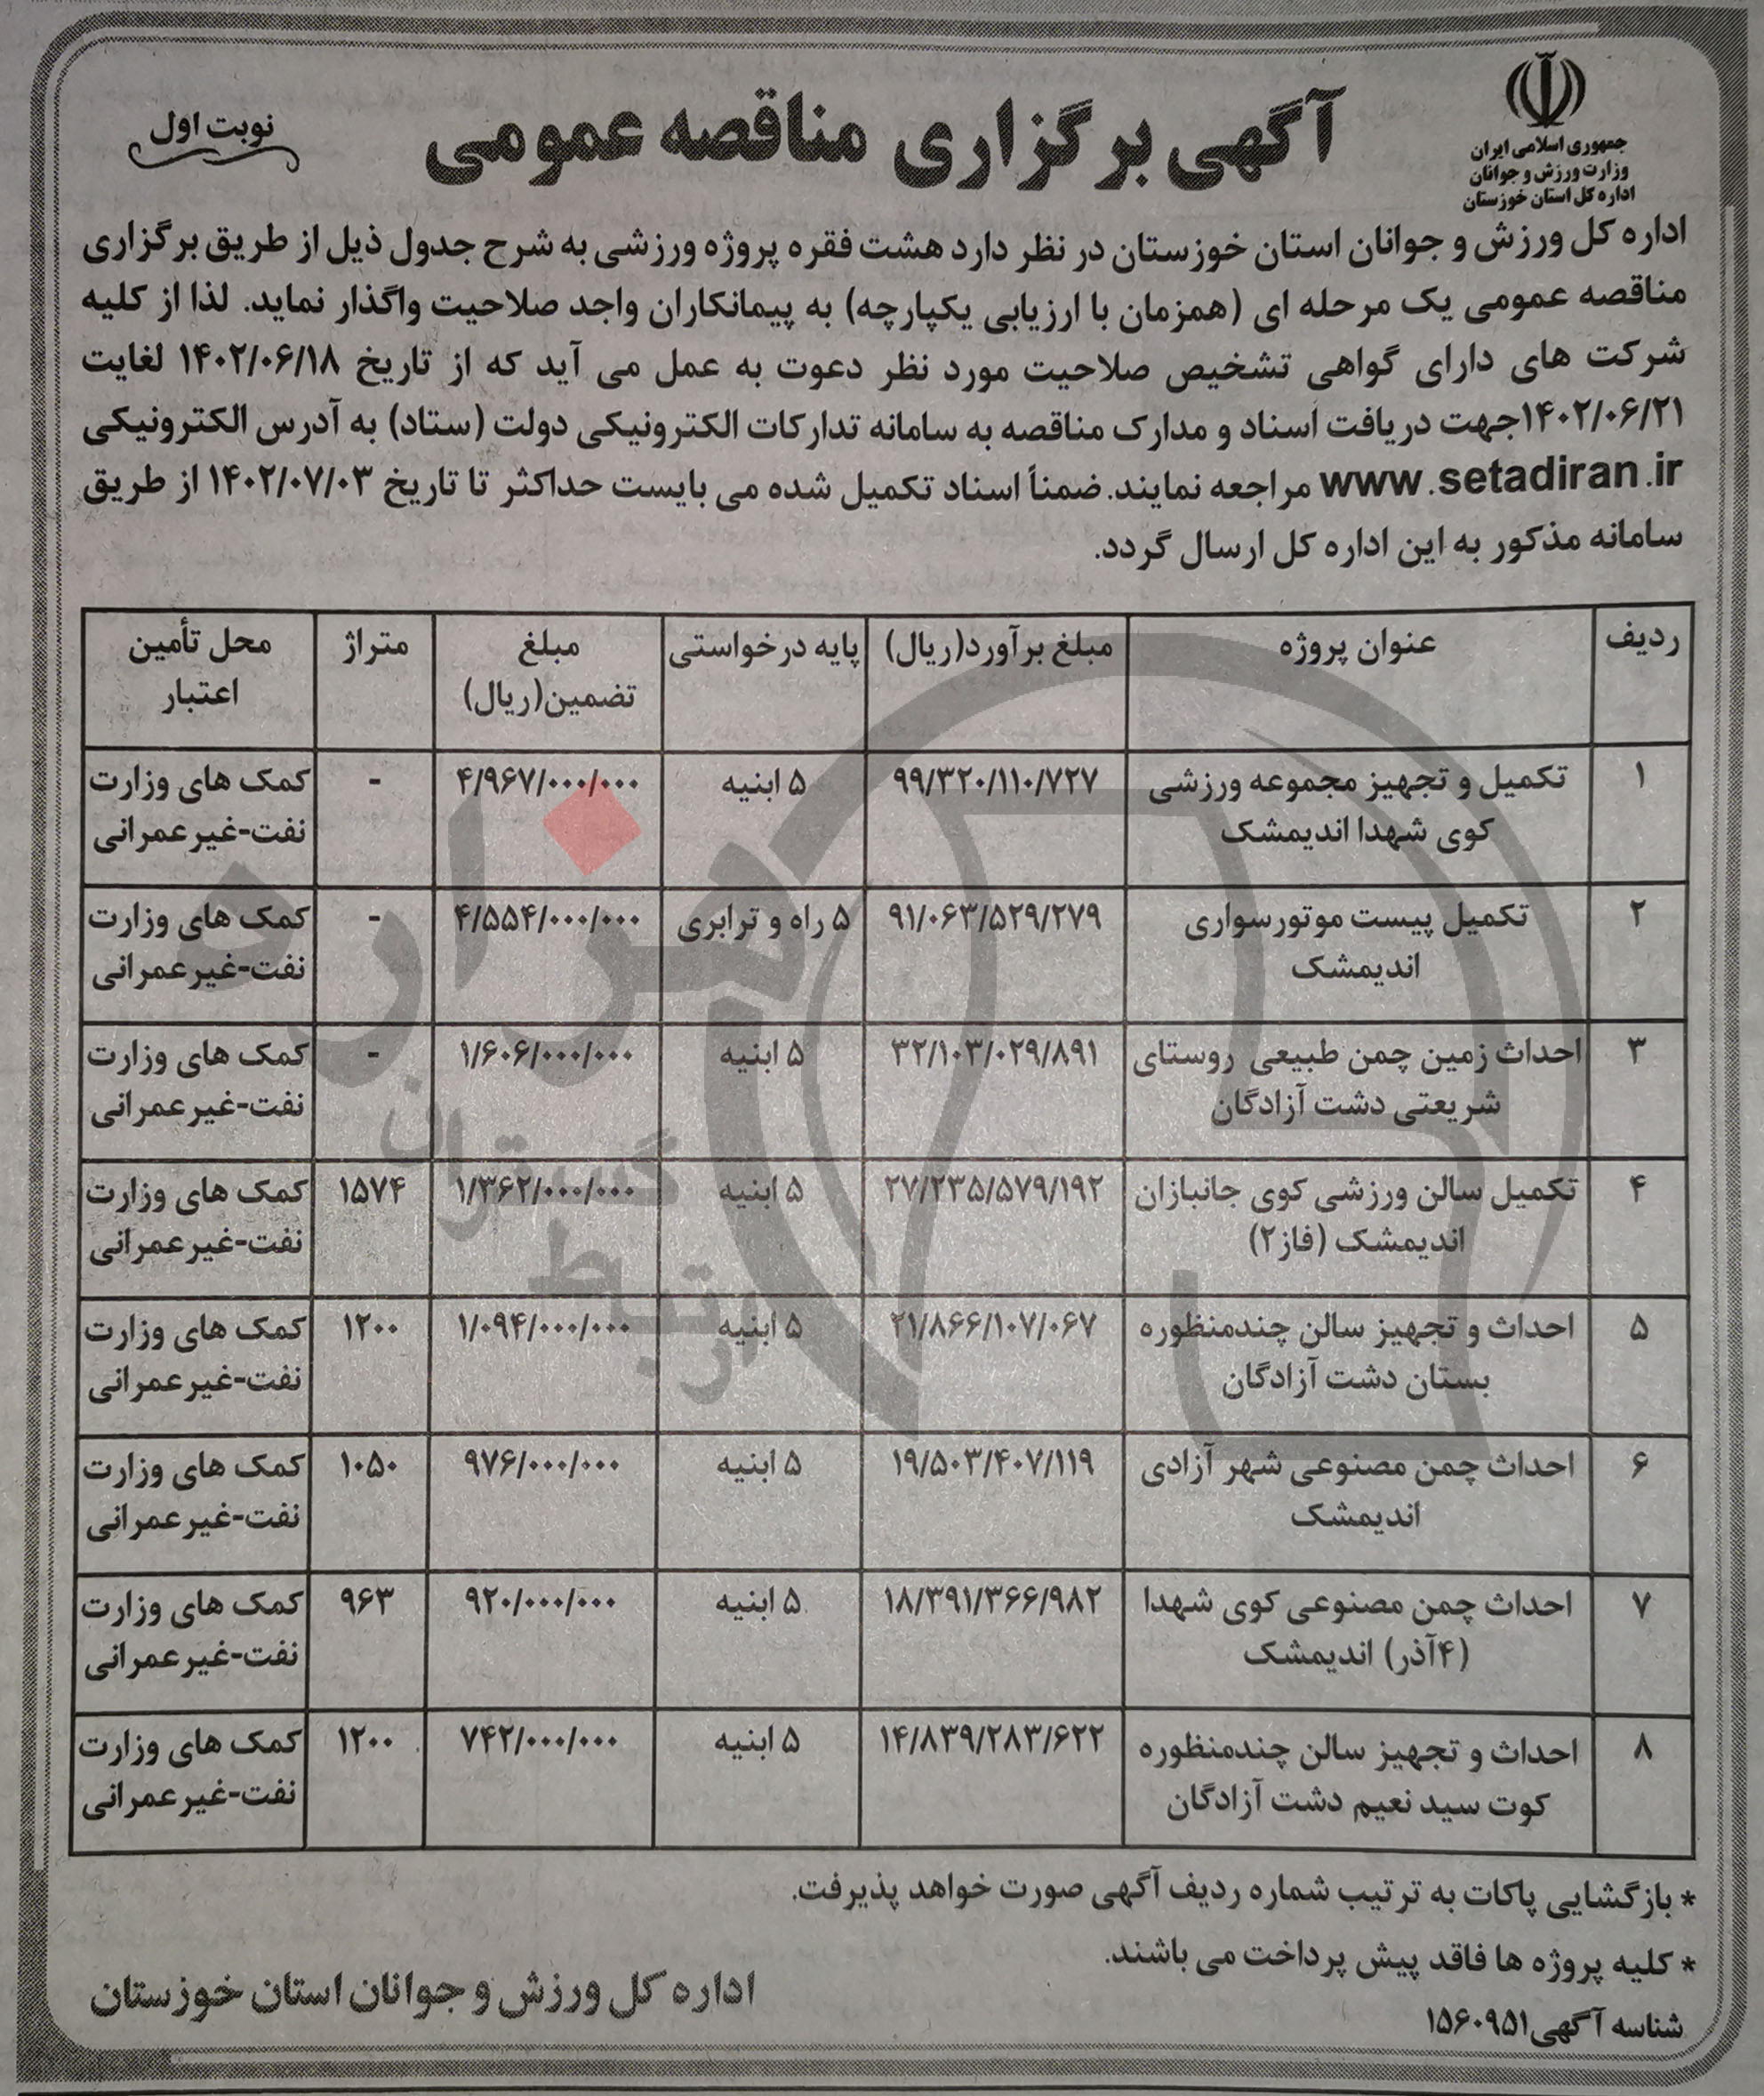 جمهوری اسلامی ایران
وزارت ورزش و جوانان
اداره کل استان خوزستان
آگهی برگزاری مناقصه عمومی
نوبت اول
اداره کل ورزش و جوانان استان خوزستان در نظر دارد هشت فقره پروژه ورزشی به شرح جدول ذیل از طریق برگزاری
مناقصه عمومی یک مرحله ای (همزمان با ارزیابی یکپارچه) به پیمانکاران واجد صلاحیت واگذار نماید. لذا از کلیه
شرکت های دارای گواهی تشخیص صلاحیت مورد نظر دعوت به عمل می آید که از تاریخ ۱۴۰۲/۰۶/۱۸ لغایت
۱۴۰۲/۰۶/۲۱جهت دریافت اسناد و مدارک مناقصه به سامانه تدارکات الکترونیکی دولت (ستاد) به آدرس الکترونیکی
www.setadiran.ir مراجعه نمایند. ضمناً اسناد تکمیل شده می بایست حداکثر تا تاریخ ۱۴۰۲/۰۷/۰۳ از طریق
سامانه مذکور به این اداره کل ارسال گردد.
ردیف عنوان پروژه مبلغ برآورد(ریال) پایه درخواستی مبلغ متراژ محل تأمین
تضمین(ریال) اعتبار
۱ تکمیل و تجهیز مجموعه ورزشی ۹۹/۳۲۰/۱۱۰/۷۲۷ ۵ ابنیه ۴/۹۶۷/۰۰۰/۰۰۰ - کمک های وزارت
کوی شهدا اندیمشک نفت-غیرعمرانی
۲ تکمیل پیست موتورسواری ۹۱/۰۶۳/۵۲۹/۲۷۹ ۵ راه و ترابری ۴/۵۵۴/۰۰۰/۰۰۰ - کمک های وزارت
اندیمشک نفت-غیرعمرانی
۳ احداث زمین چمن طبیعی روستای ۳۲/۱۰۳/۰۲۹/۸۹۱ ۵ ابنیه ۱/۶۰۶/۰۰۰/۰۰۰ - کمک های وزارت
شریعتی دشت آزادگان نفت-غیرعمرانی
۴ تکمیل سالن ورزشی کوی جانبازان ۲۷/۲۳۵/۵۷۹/۱۹۲ ۵ ابنیه ۱/۳۶۲/۰۰۰/۰۰۰ ۱۵۷۴ کمک های وزارت
اندیمشک (فاز۲) نفت-غیرعمرانی
۵ احداث و تجهیز سالن چندمنظوره ۲۱/۸۶۶/۱۰۷/۰۶۷ ۵ ابنیه ۱/۰۹۴/۰۰۰/۰۰۰ ۱۲۰۰ کمک های وزارت
بستان دشت آزادگان نفت-غیرعمرانی
۶ احداث چمن مصنوعی شهر آزادی ۱۹/۵۰۳/۴۰۷/۱۱۹ ۵ ابنیه ۹۷۶/۰۰۰/۰۰۰ ۱۰۵۰ کمک های وزارت
اندیمشک نفت-غیرعمرانی
۷ احداث چمن مصنوعی کوی شهدا ۱۸/۳۹۱/۳۶۶/۹۸۲ ۵ ابنیه ۹۲۰/۰۰۰/۰۰۰ ۹۶۳ کمک های وزارت
(۴آذر) اندیمشک نفت-غیرعمرانی
۸ احداث و تجهیز سالن چندمنظوره ۱۴/۸۳۹/۲۸۳/۶۲۲ ۵ ابنیه ۷۴۲/۰۰۰/۰۰۰ ۱۲۰۰ کمک های وزارت
کوت سید نعیم دشت آزادگان نفت-غیرعمرانی
* بازگشایی پاکات به ترتیب شماره ردیف آگهی صورت خواهد پذیرفت.
* کلیه پروژه ها فاقد پیش پرداخت می باشند.
شناسه آگهی۱۵۶۰۹۵۱
اداره کل ورزش و جوانان استان خوزستان